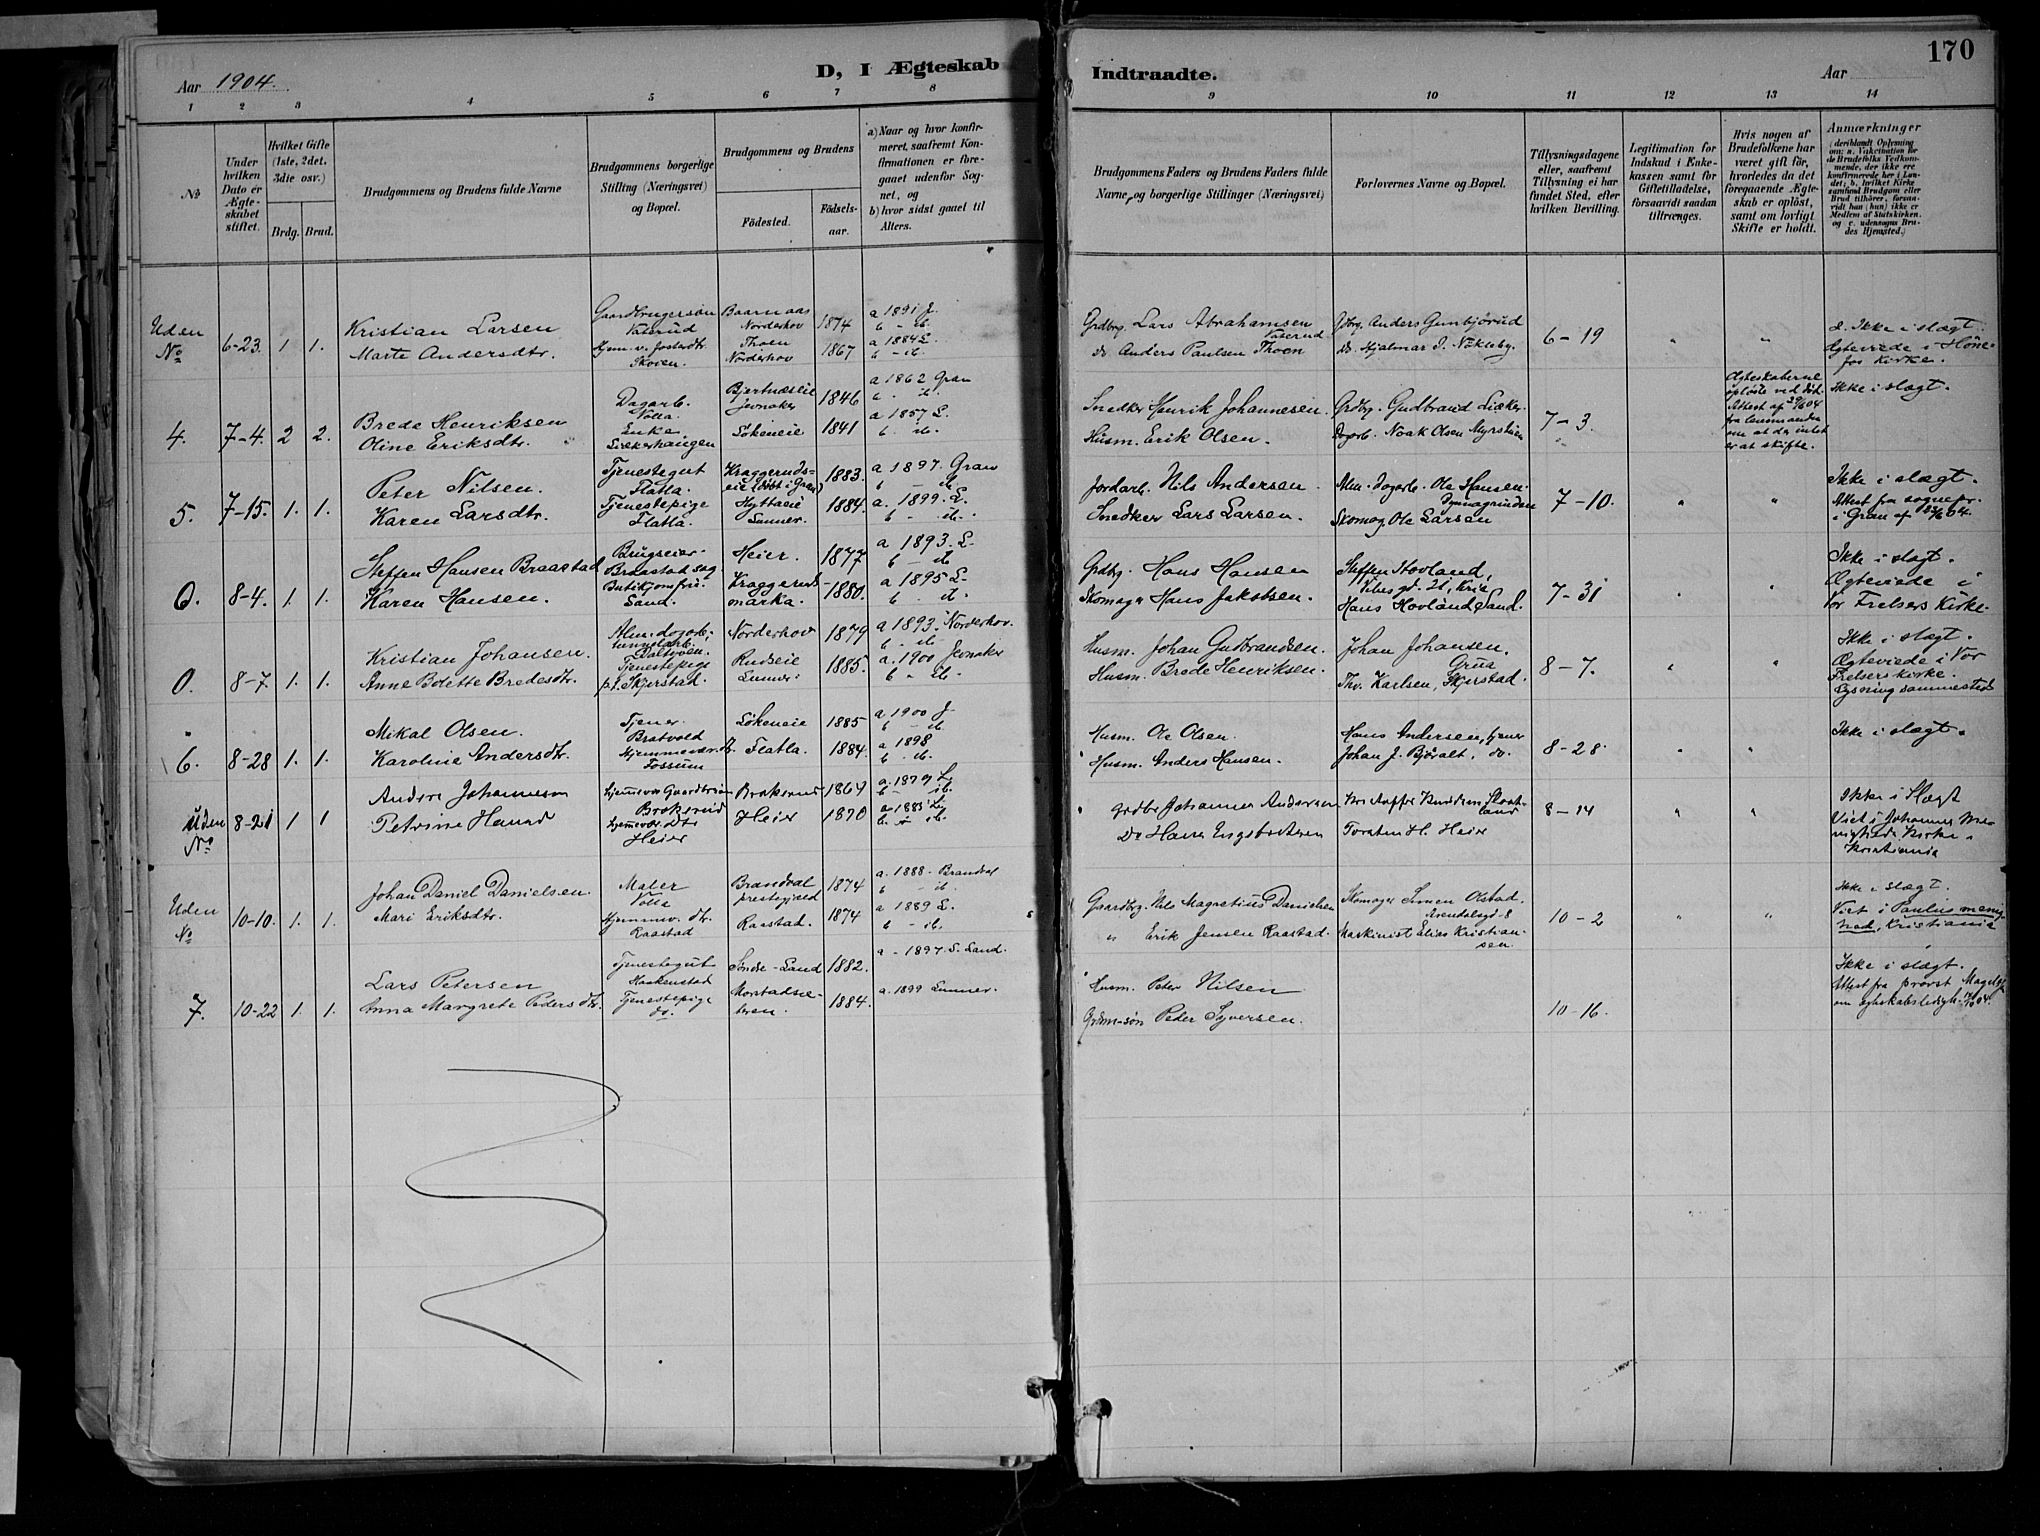 Aar 1904.
D, I Ægteskab
Indtraadte.
Aar
170
1 2 3 4 5 6 7 8 9 10 11 12 13 14
№
Under hvilken Dato er Ægteskabet stiftet.
Hvilket Gifte (1ste, 2det, 3die osv.)
Brdg. Brud.
Brudgommens og Brudens fulde Navne
Brudgommens borgerlige Stilling (Næringsvei) og Bopæl.
Brudgommens og Brudens
Fødested.
Fødselsaar.
a) Naar og hvor konfirmeret, saafremt Konfirmationen er foregaaet udenfor Sognet, og
b) hvor sidst gaaet til Alters.
Brudgommens Faders og Brudens Faders fulde Navne, og borgerlige Stillinger (Næringsvei)
Forlovernes Navne og Bopæl.
Tillysningsdagene eller, saafremt Tillysning ei har fundet Sted, efter hvilken Bevilling.
Legitimation for Indskud i Enkekassen samt for Giftetilladelse, forsaavidt saadan tiltrænges.
Hvis nogen af Brudefolkene har været gift før, hvorledes da det foregaaende Ægteskab er opløst, samt om lovligt Skifte er holdt.
Anmærkninger
(deriblandt Oplysning om: a. Vakcination for de Brudefolks Vedkommende, der ikke ere konfirmerede her i Landet; b. hvilket Kirkesamfund Brudgom eller Brud tilhører, forsaavidt han (hun) ikke er Medlem af Statskirken, og c. udensogns Brudes Hjemsted.)
Uden No 6-23. 1 1.
Kristian Larsen
Marte Andersdtr.
Gaardbrugersøn
Vaterud
Hjem. v. fosterdtr.
Skoven.
Norderhov 1874
Thoen
Norderhov 1867
a 1891 J.
b - ib.
a 1884 L.
b - ib.
Grdbrg. Lars Abrahamsen Vaterud
Do Anders Paulsen Thoen
Gdbrg. Anders Gunbjørud
Do. Hjalmar P. Nökleby.
6-19 " "
Ikke i slægt.
Ægteviede i Hønefos Kirke.
4. 7-4. 2 2.
Brede Henriksen
Oline Eriksdtr.
Dagarb.
Volla.
Enke
Jevnaker 1846
Løkeneie 1841
a 1862 Gran
b. ib.
a 1857 L.
b. ib.
Snedker Henrik Johannesen.
Husm. Erik Olsen.
Grdbg. Gudbrand Liøker
Dagarb. Noak Olsen Myrstuen
7-3.
Ægteskaberne opløste ved død.
Attest af 29/6 04
fra lensmanden om at der intet er at skifte.
Ikke i slægt.
5. 7-15. 1. 1.
Peter Nilsen.
Karen Larsdtr.
Tjenestegut
Flatla.
Tjenestepige
Flatla.
Kraggerudseie (døbt i Gran) 1883.
Hytteeie
Lunner. 1884.
a 1897. Gran
b - ib
a. 1899. L.
b - ib.
Jordarb. Nils Andersen
Snedker Lars Larsen.
Alm. Dagarb. Ole Hansen
Skomag. Ole Larsen
7-10. " "
Ikke i slægt.
Attest fra sognepr. i Gran af 23/6 04.
0. 8-4. 1. 1.
Steffen Hansen Braastad
Karen Hansen.
Brugseier
Braastad sag
Butikjomfru
Sand.
Heier. 1877
Kraggerudmarka. 1880.
a 1893. L.
b - ib
a 1895 L.
b - ib.
Grdbg. Hans Hansen
Skomager Hans Jakobsen.
Steffen Hovland,
Hans Hovland Sand.
7-31
Ikke i slægt.
Ægteviede i
Vor Frelsers Kirke.
0. 8-7. 1. 1.
Kristian Johansen.
Anne Bolette Bredesdtr.
Alm. dagarb.
Tjenestepige
p.t. Skjerstad.
Norderhov 1879
Rudseie
Lunner. 1885.
a 1893. Norderhov.
b. - ib
a. 1900 Jevnaker
b - ib.
Husm. Johan Gudbrandsen.
Husm. Brede Henriksen.
Johan Johansen,
Grua
Thv. Karlsen, Skjerstad.
8-7. " "
Ikke i slægt.
Ægteviede i Vor
Frelsers kirke.
Lysning sammesteds
6. 8-28 1. 1.
Mikal Olsen.
Karoline Andersdtr.
Tjener
Bratvold
Hjemmevær. dtr.
Fossum
Løkeneie 1885
Flatla. 1884.
a 1900 J.
b - ib
a 1898
b - ib.
Husm. Ole Olsen.
Husm. Anders Hansen.
Hans Andersen, tjener
Johan J. Bjøralt, do.
8-28. " "
Ikke i slægt.
Uden No 8-21 1 1
Anders Johannesen
Petrine Hansd
Braksrud
Hjemmevær. dtr
Heier
Braksrud 1864
Heier 1870
a. 1879 L.
b - ib.
a. 1885 L.
b. - ib.
Grdbr Johannes Andersen
Do Hans Engebretsen
Kristoffer Knudsen Slaatland
Torsten H. Heier
8-14 " "
Ikke i Slægt
Viet i Johannes Menigheds Kirke,
Kristiania
Uden No 10-10. 1. 1.
Johan Daniel Danielsen.
Mari Eriksdtr.
Maler
Volla
Hjemmev. dtr.
Raastad
Brandval
prestegjeld 1874
Raastad. 1874
a. 1888. Brandval
b - ib.
a 1889 L.
b - ib.
Gaardbrg. Nils Magretius Danielsen
" Erik Jensen Raastad.
Skomager Simen Olstad.
Arendalsgd. 8
Maskinist Elias Kristiansen.
10-2 " "
Ikke i slægt.
Viet i Paulus menighed, Kristiania
7. 10-22 1. 1.
Lars Petersen
Anna Margrete Pedersdtr.
Tjenestegut
Haakenstad
Tjenestepige
do.
Søndre-Land 1882.
Morstadseteren. 1884.
a - 1897. S. Land.
a. 1899 Lunner.
Husm. Peter Nilsen
Grdm-søn Peder Syversen.
10-16.
Ikke i slægt.
Attest fra provst Magelssen
om ægteskabsledigh. 14/10 04.